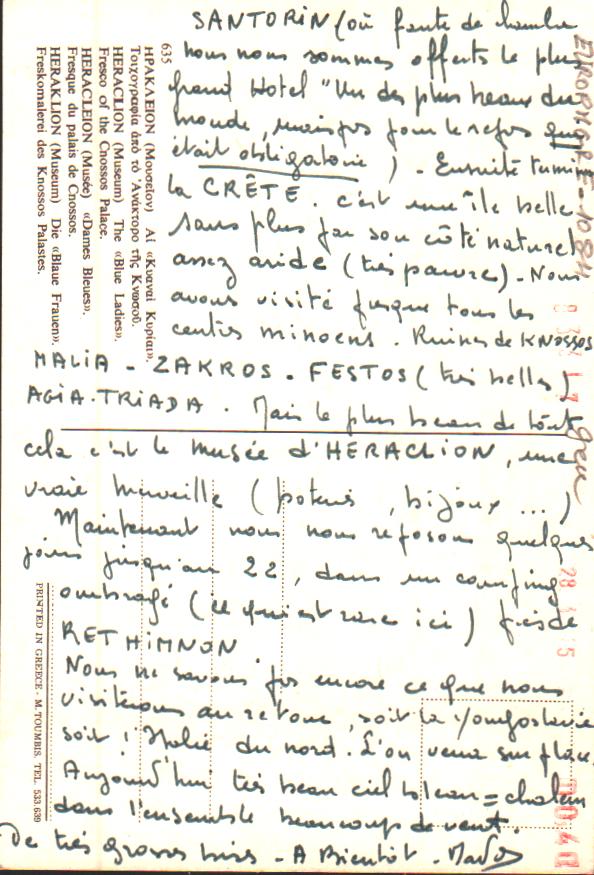 SANTORIN (où faute de chambre
nous nous sommes offerts le plus
grand Hotel "Un des plus beaux du
monde, mais pas pour le refus qui
était obligatoire) - Ensuite
la CRÊTE. c'est une île belle
sans plus par son côté naturel
assez aride (très pauvre) - Nous
avons visité presque tous les
centres minoens. Ruines de KNOSSOS
MALIA - ZAKROS - FESTOS (très belles)
AGIA-TRIADA. Mais le plus beau de tout
cela c'est le musée d'HERACLION, une
vraie merveille (poteries, bijoux ...)
Maintenant nous nous reposons quelques
jours jusqu'au 22, dans un camping
ombragé (ce qui est rare ici) près de
RETHIMNON
Nous ne savons pas encore ce que nous
visiterons au retour, soit la Yougoslavie
soit l'Italie du nord. L'on verra sur place.
Aujourd'hui très beau ciel bleu = chaleur
dans l'ensemble beaucoup de vent.
De très grosses bises - A Bientôt -
635
ΗΡΑΚΛΕΙΟΝ (Μουσεῖον) Αἱ «Κυαναῖ Κυρίαι».
Τοιχογραφία ἀπὸ τὸ Ἀνάκτορο τῆς Κνωσοῦ.
HERACLION (Museum) The «Blue Ladies».
Fresco of the Cnossos Palace.
HERACLEION (Musée) «Dames Bleues».
Fresque du palais de Cnossos.
HERAKLION (Museum) Die «Blaue Frauen».
Freskomalerei des Knossos Palastes.
PRINTED IN GREECE - M. TOUMBIS. TEL. 533.639